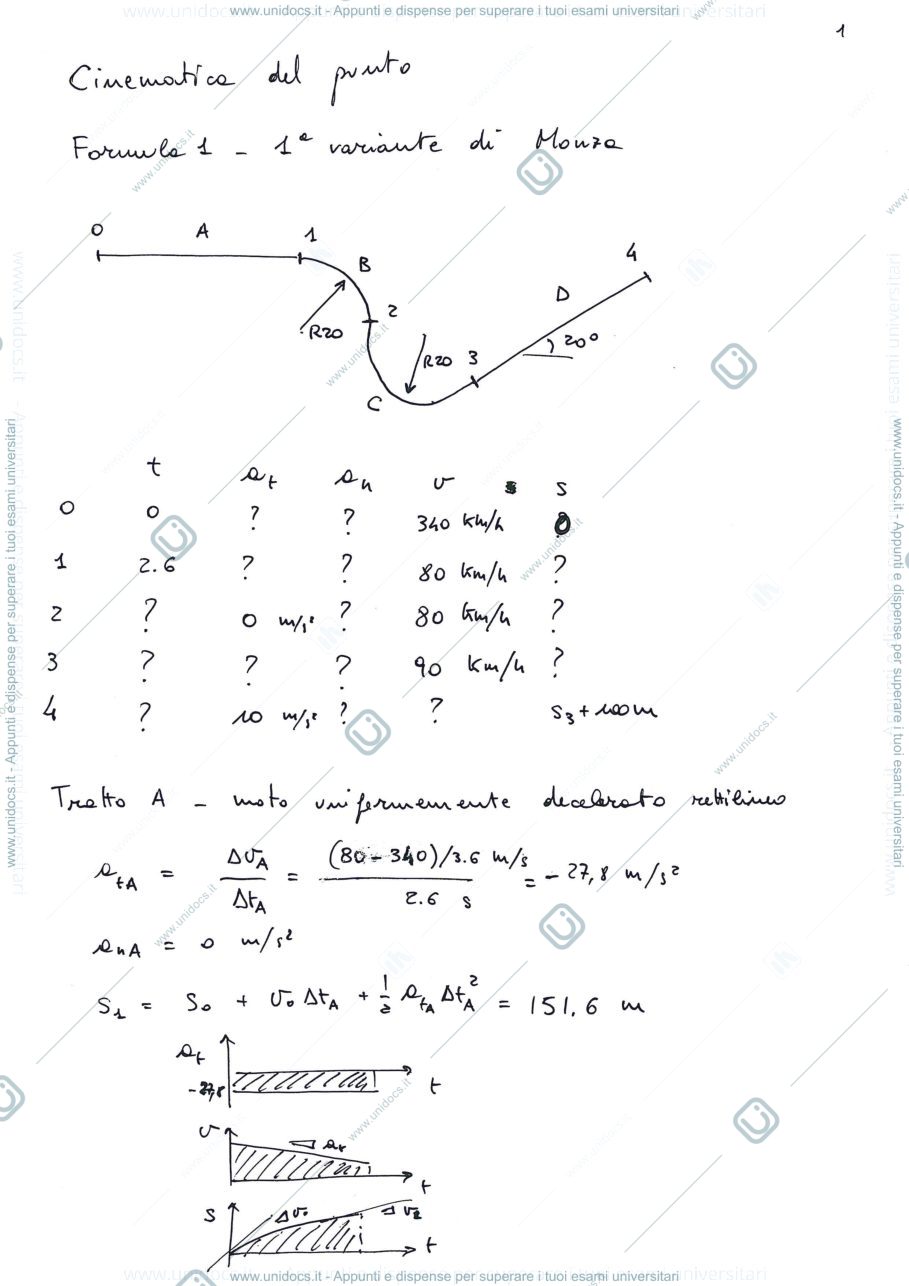 www.unidocs.it - Appunti e dispense per superare i tuoi esami universitari
1
Cinematica del punto
Formula 1 - 1ª variante di Monza
0 A 1
B
4
D
2
R20
R20 3
20°
C
t at an v s
0 0 ? ? 340 km/h 0
1 2.6 ? ? 80 km/h ?
2 ? 0 m/s² ? 80 km/h ?
3 ? ? ? 90 km/h ?
4 ? 10 m/s² ? ? s3 + 100m
Tratto A - moto uniformemente decelerato rettilineo
atA = ΔvA / ΔtA = (80 - 340)/3.6 m/s / 2.6 s = - 27,8 m/s²
anA = 0 m/s²
S1 = S0 + v0 ΔtA + 1/2 atA ΔtA² = 151,6 m
at
-27,8
t
v
at
t
s
v0
v2
t
www.unidocs.it - Appunti e dispense per superare i tuoi esami universitari